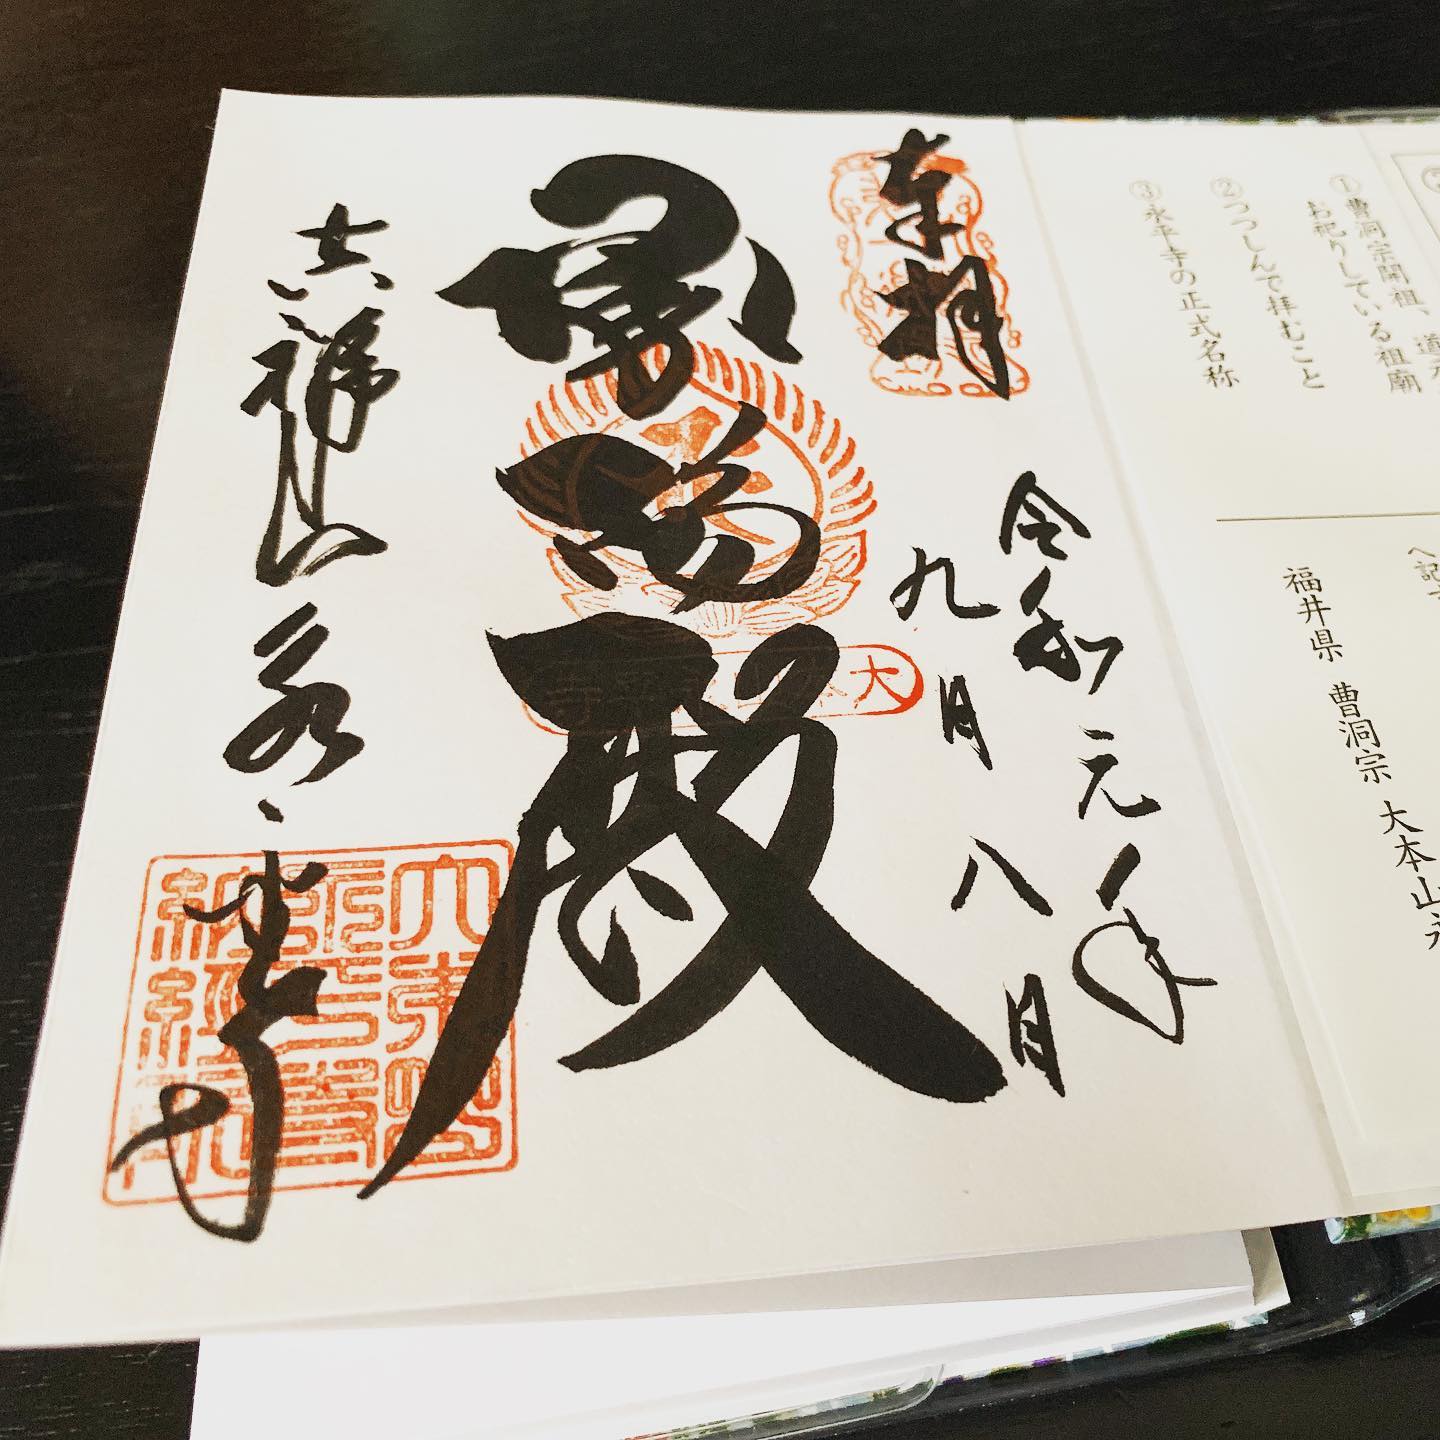 ①曹洞宗開祖、道元
お祀りしている祖廟
②つつしんで拝むこと
③永平寺の正式名称
福井県 曹洞宗 大本山永
奉拝
令和元年
九月八日
承陽殿
大
寺
吉祥山永平寺